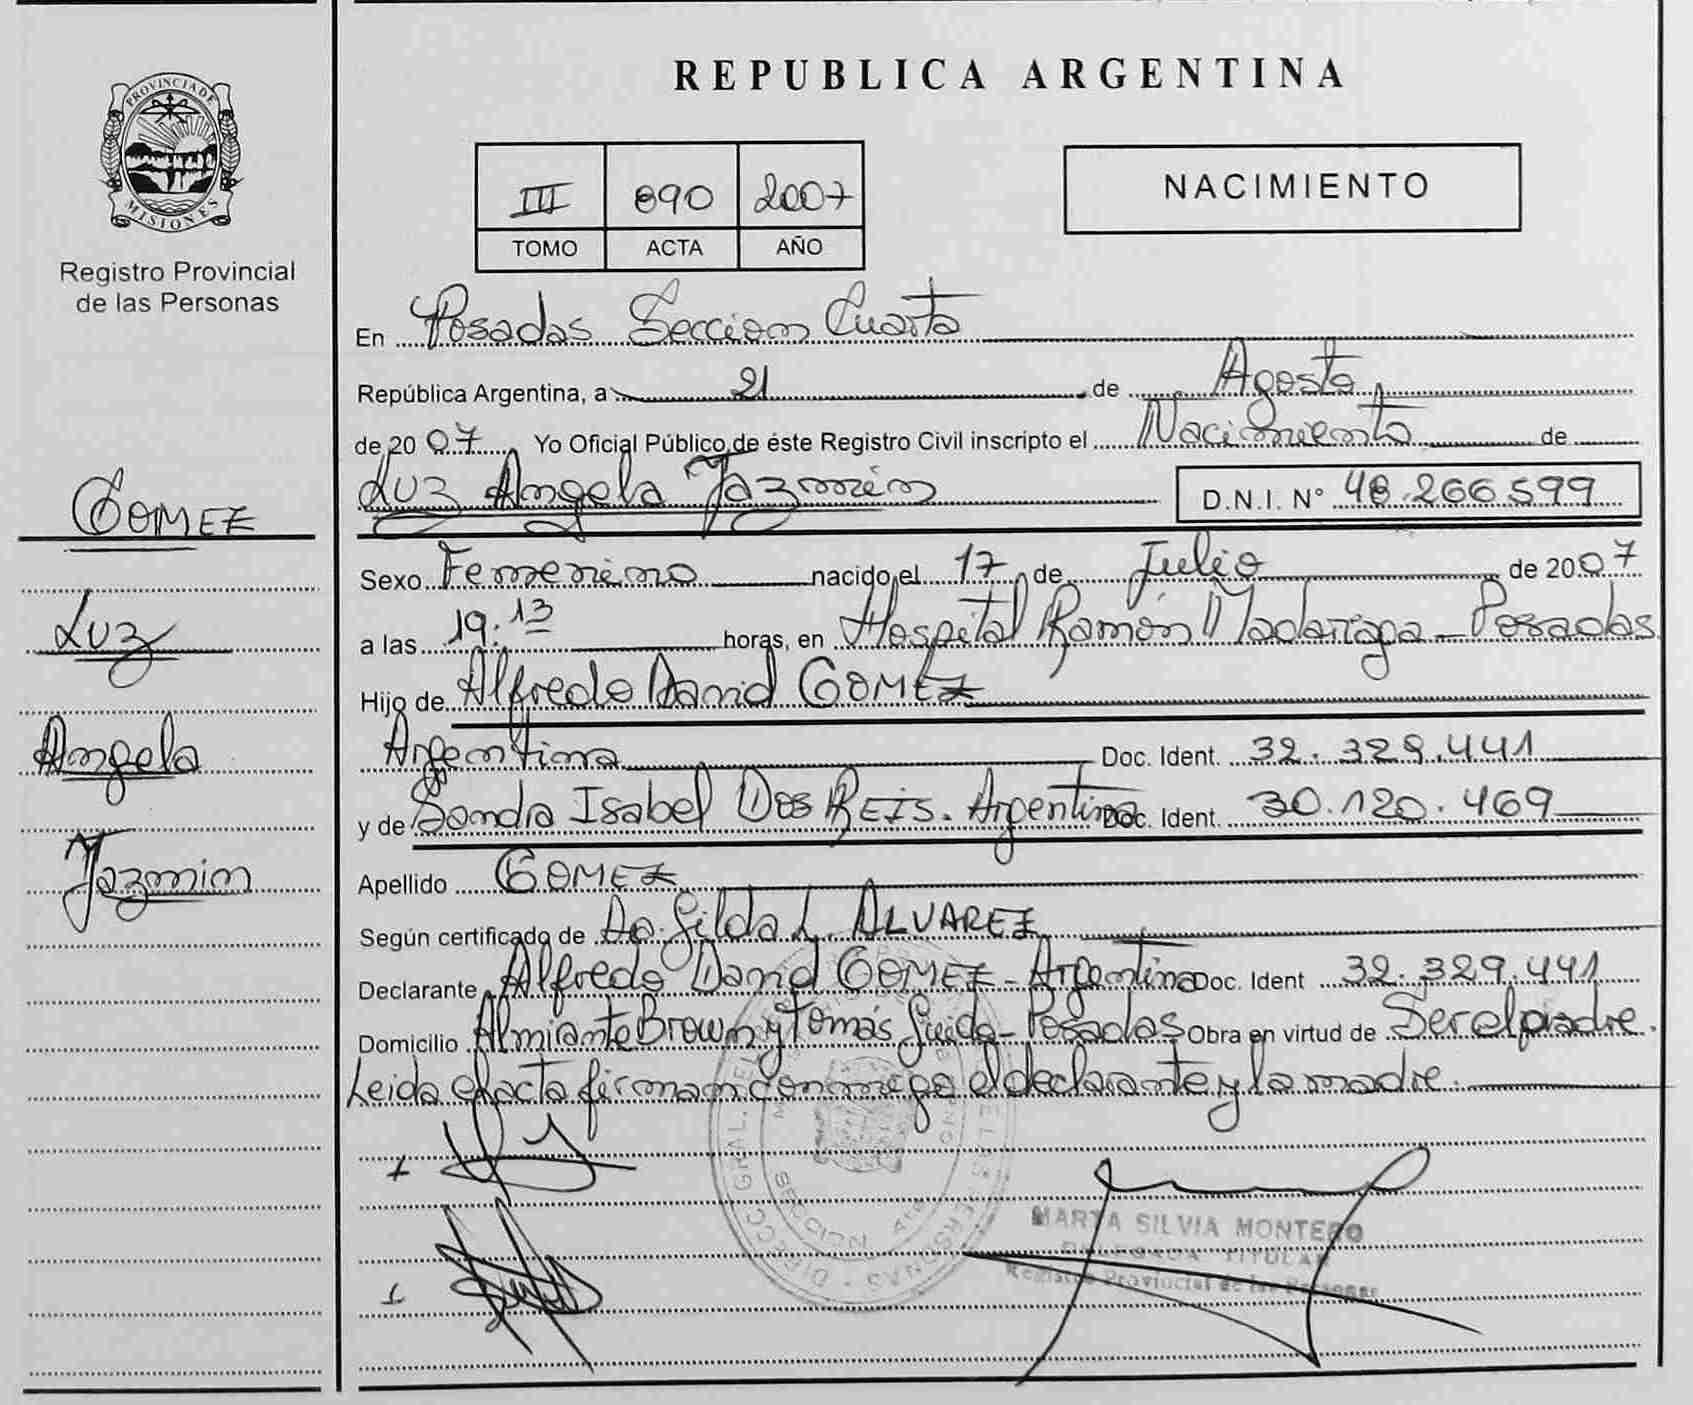 PROVINCIA DE
MISIONES
Registro Provincial
de las Personas
GOMEZ
Luz
Angela
Jazmin
REPUBLICA ARGENTINA
III 890 2007
TOMO ACTA AÑO
NACIMIENTO
En Posadas Seccion Cuarta
República Argentina, a 21 de Agosto
de 2007 Yo Oficial Público de éste Registro Civil inscripto el Nacimiento de
Luz Angela Jazmín D.N.I. N° 48.266.599
Sexo Femenino nacido el 17 de Julio de 2007
a las 19:13 horas, en Hospital Ramón Madariaga - Posadas
Hijo de Alfredo David GOMEZ
Argentina Doc. Ident. 32.329.441
y de Sandra Isabel Dos REIS. Argentina Doc. Ident. 30.120.469
Apellido GOMEZ
Según certificado de Gilda L. ALVAREZ
Declarante Alfredo David GOMEZ - Argentina Doc. Ident 32.329.441
Domicilio Almirante Brown y Tomás Guido - Posadas Obra en virtud de Ser el padre.
Leida el acta firman conmigo el declarante y la madre.
MARTA SILVIA MONTERO
DELEGADA TITULAR
Registro Provincial de las Personas